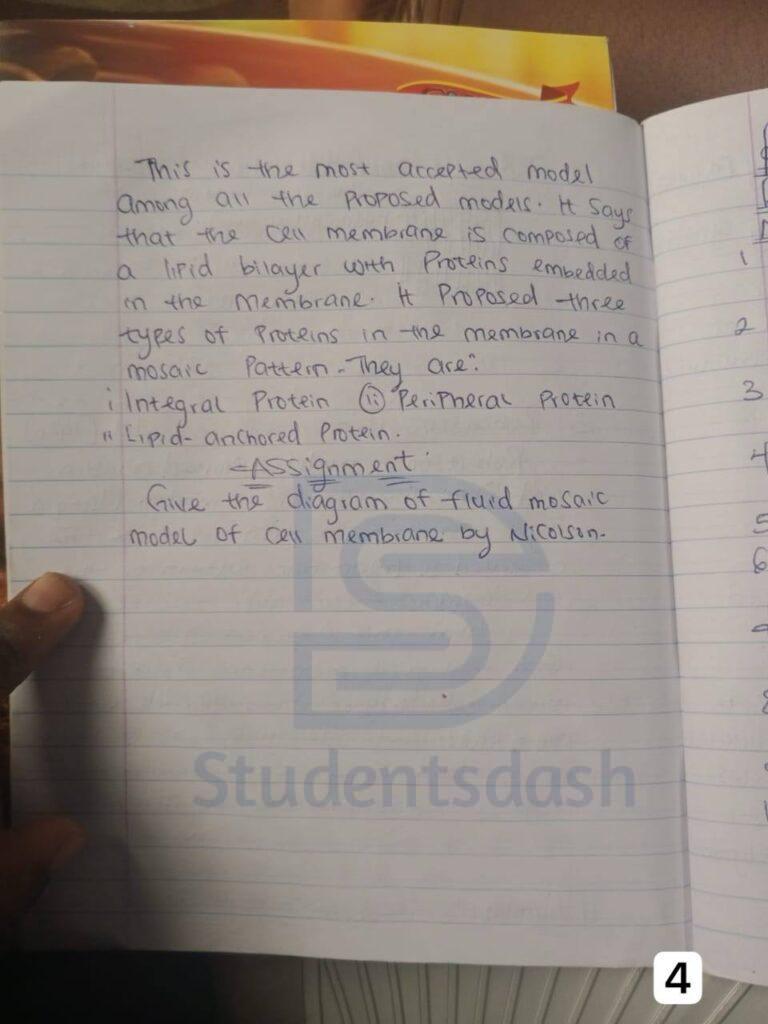 This is the most accepted model
among all the Proposed models. It Says
that the cell membrane is composed of
a lipid bilayer with Proteins embedded
in the membrane. It Proposed three
types of Proteins in the membrane in a
mosaic Pattern. They are:
i Integral Protein (ii) Peripheral Protein
" Lipid-anchored Protein.
Assignment
Give the diagram of fluid mosaic
model of cell membrane by Nicolson.
Studentsdash
1
2
3
4
5
6
4